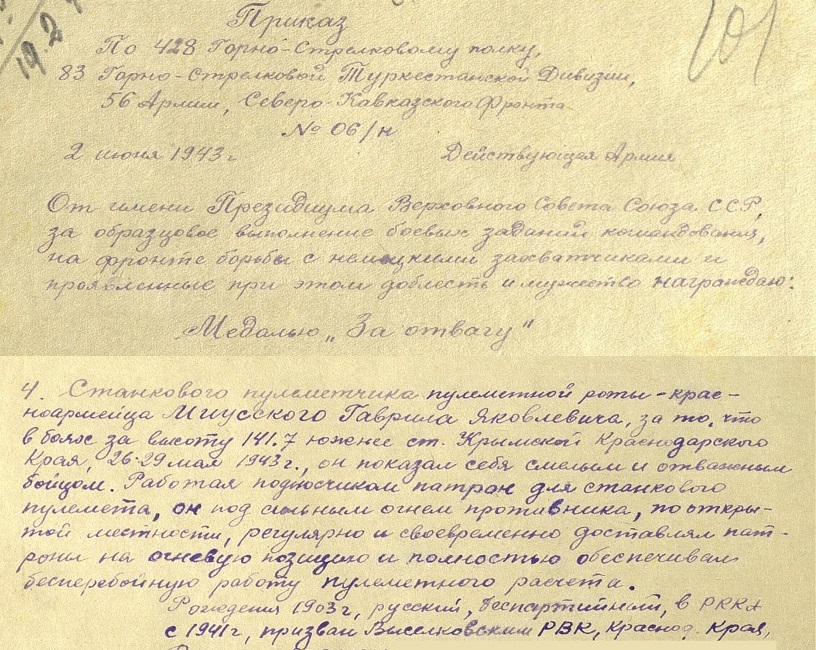 Приказ
По 428 Горно-Стрелковому полку,
83 Горно-Стрелковой Туркестанской Дивизии,
56 Армии, Северо-Кавказского Фронта
№ 06/н
2 июня 1943 г Действующая Армия
От имени Президиума Верховного Совета Союза ССР,
за образцовое выполнение боевых заданий командования,
на фронте борьбы с немецкими захватчиками и
проявленные при этом доблесть и мужество награждаю:
Медалью „За отвагу"
4. Станкового пулеметчика пулеметной роты - крас-
ноармейца Миусского Гаврила Яковлевича, за то, что
в боях за высоту 141.7 южнее ст. Крымской Краснодарского
Края, 26-29 мая 1943 г., он показал себя смелым и отважным
бойцом. Работая подносчиком патрон для станкового
пулемета, он под сильным огнем противника, по откры-
той местности, регулярно и своевременно доставлял пат-
роны на огневую позицию и полностью обеспечивал
бесперебойную работу пулеметного расчета.
Рождения 1903 г, русский, беспартийный, в РККА
с 1941 г, призван Выселковским РВК, Краснод. Края,